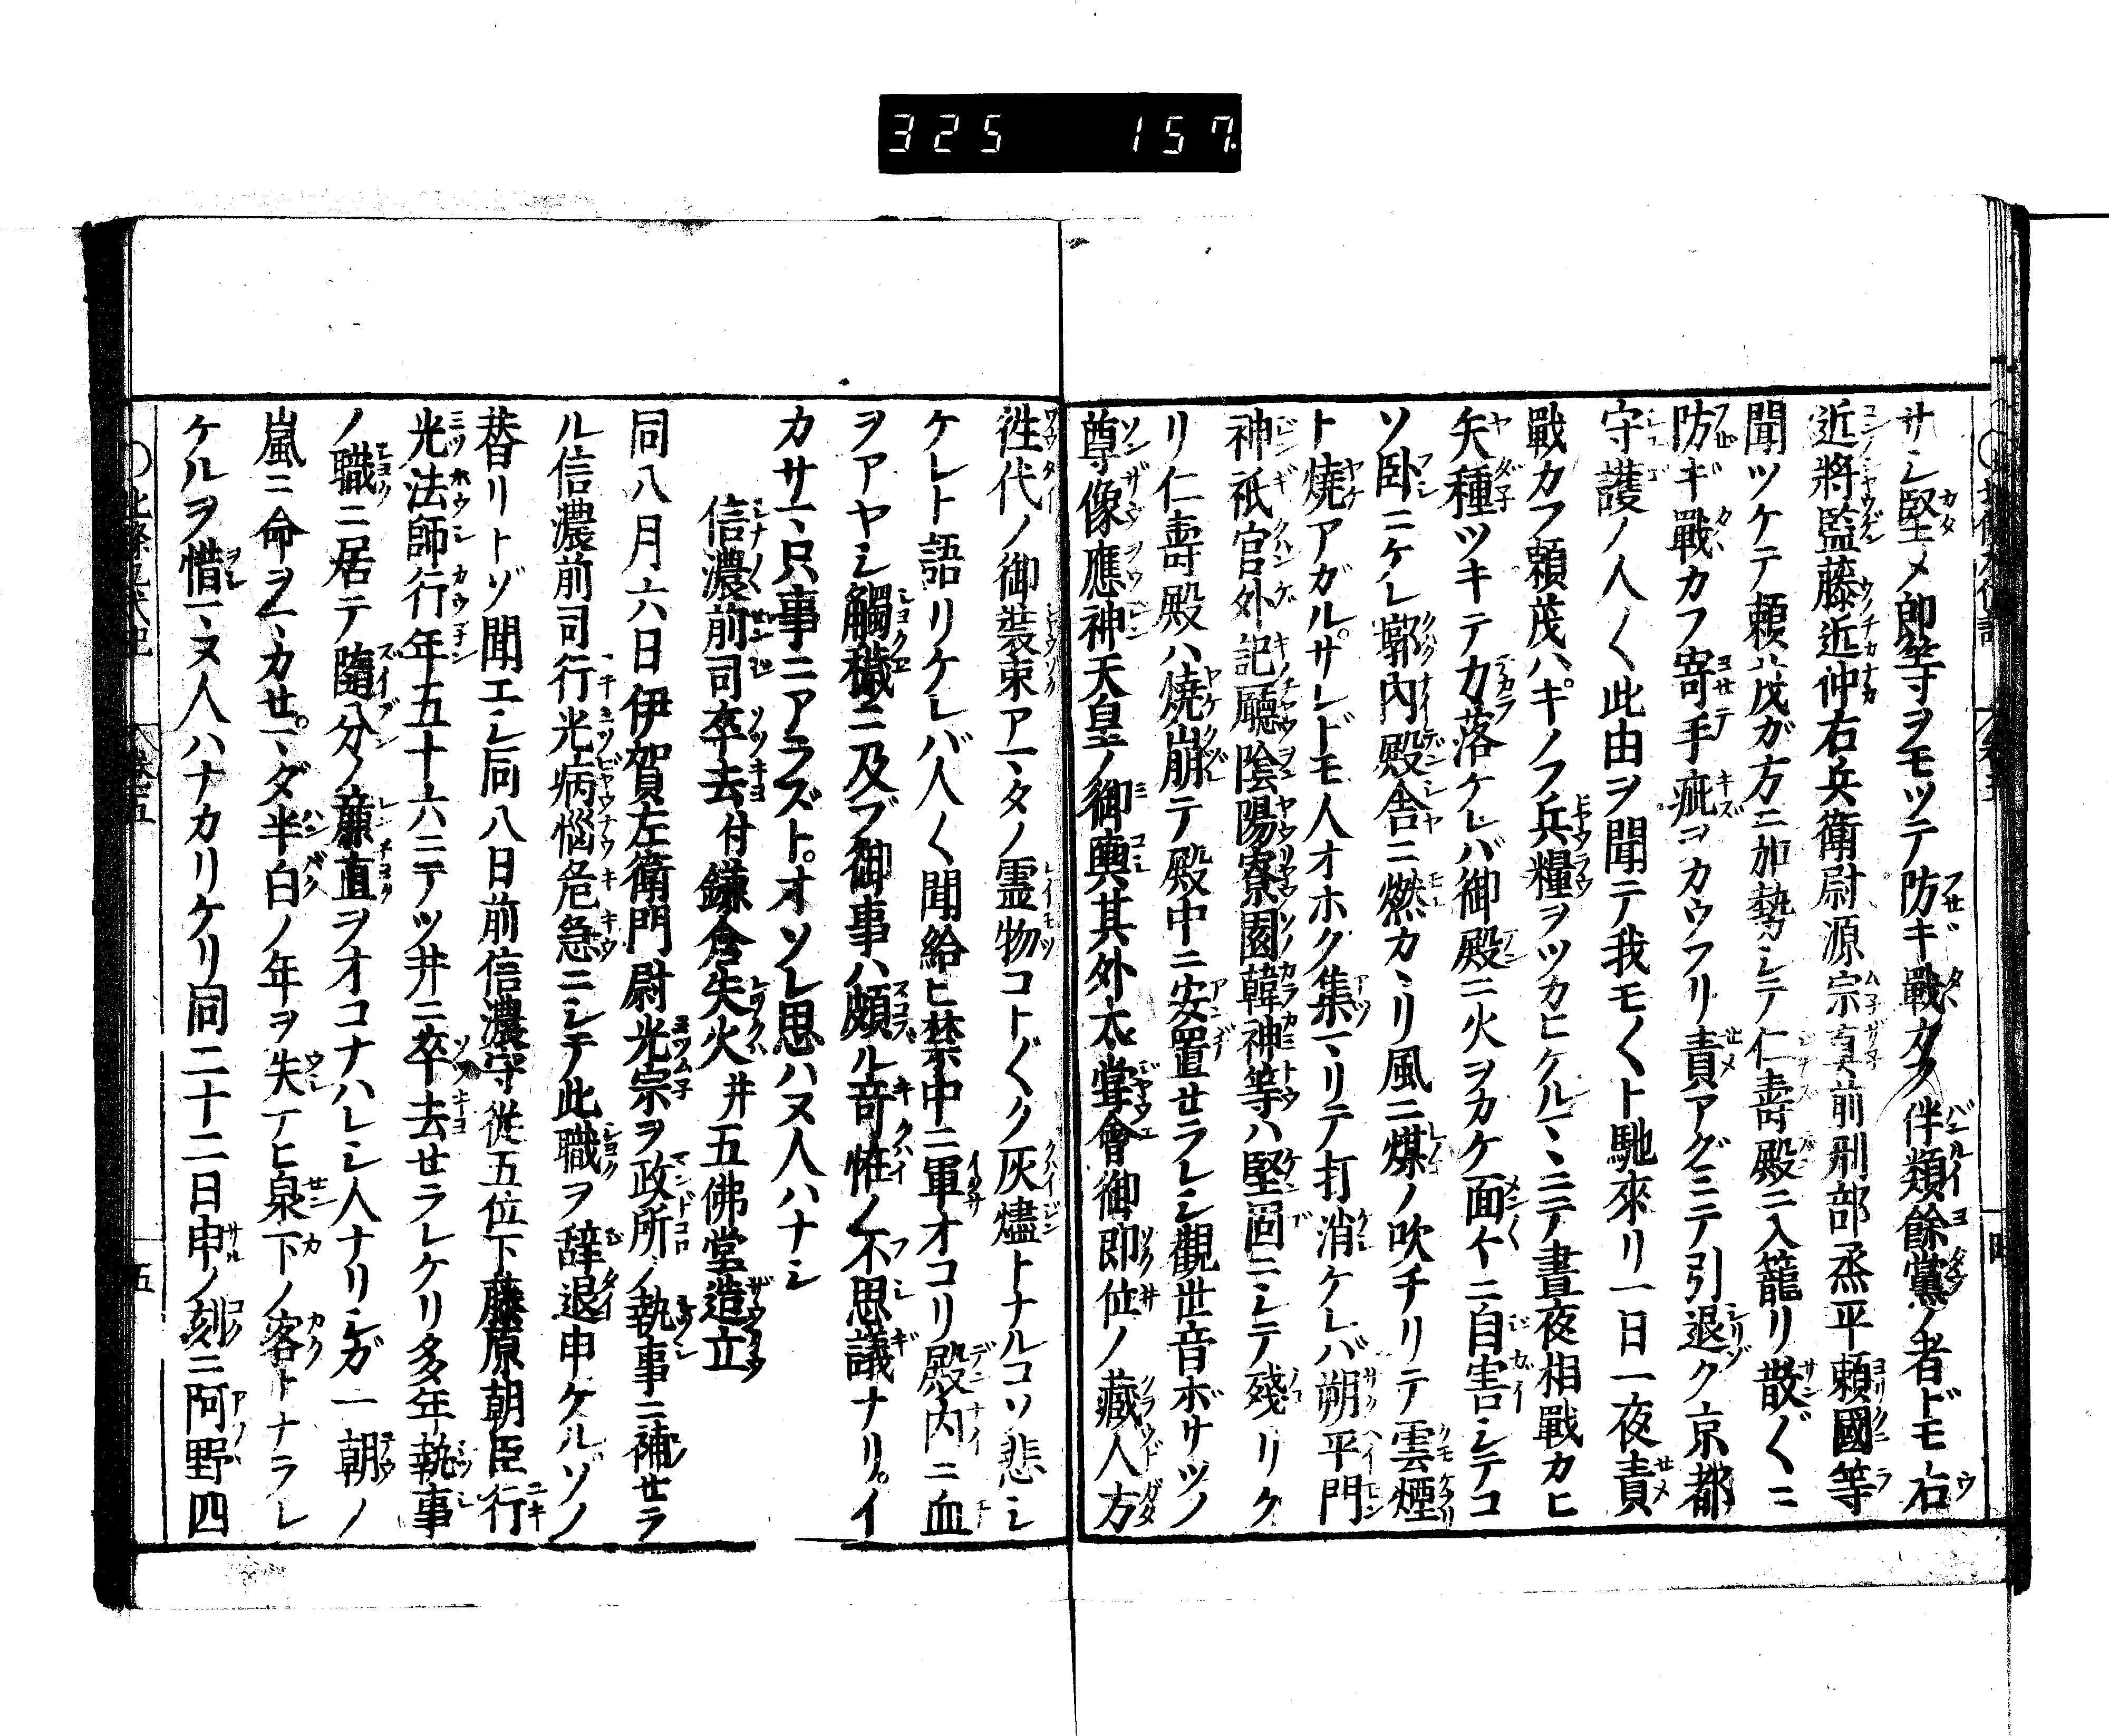 325 157
サシ堅メ郎等ヲモツテ防キ戰カフ伴類餘黨ノ者ドモ右
近將監藤近仲右兵衛尉源宗真前刑部烝平頼國等
聞ツケテ頼茂ガ方ニ加勢シテ仁壽殿ニ入籠リ散〲ニ
防ギ戰カフ寄手疵ヲカウフリ責アグミニテ引退ク京都
守護ノ人〱此由ヲ聞テ我モ〱ト馳來リ一日一夜責
戰カフ頼茂ハキノフ兵糧ヲツカヒケルマヽニテ晝夜相戰カヒ
矢種ツキテ力落ケレバ御殿ニ火ヲカケ面々ニ自害シテコ
ソ臥ニケレ郭内殿舎ニ燃カヽリ風ニ煤ノ吹チリテ雲煙
ト燒アガルサレドモ人オホク集マリテ打消ケレバ朔平門
神祇官外記廳陰陽寮園韓神等ハ堅固ニシテ殘リケ
リ仁壽殿ハ燒崩テ殿中ニ安置セラレシ觀世音ボサツノ
尊像應神天皇ノ御輿其外大甞會御即位ノ藏人方
徃代ノ御裝束アマタノ霊物コト〲ク灰燼トナルコソ悲シ
ケレト語リケレバ人〱聞給ヒ禁中ニ軍オコリ殿内ニ血
ヲアヤシ觸穢ニ及ブ御事ハ頗ル奇恠ノ不思議ナリイ
カサマ只事ニアラズトオソレ思ハヌ人ハナシ
信濃前司卒去付鎌倉失火并五佛堂造立
同八月六日伊賀左衛門尉光宗ヲ政所ノ執事ニ補セラ
ル信濃前司行光病惱危急ニシテ此職ヲ辞退申ケルソノ
替リトゾ聞エシ同八日前信濃守從五位下藤原朝臣行
光法師行年五十六ニテツ井ニ卒去セラレケリ多年執事
ノ職ニ居テ隨分ノ廉直ヲオコナハレシ人ナリシガ一朝ノ
嵐ニ命ヲマカセマダ半白ノ年ヲ失ナヒ泉下ノ客トナラレ
ケルヲ惜マヌ人ハナカリケリ同二十二日申ノ刻ニ阿野四
○北條九代記 巻五 五